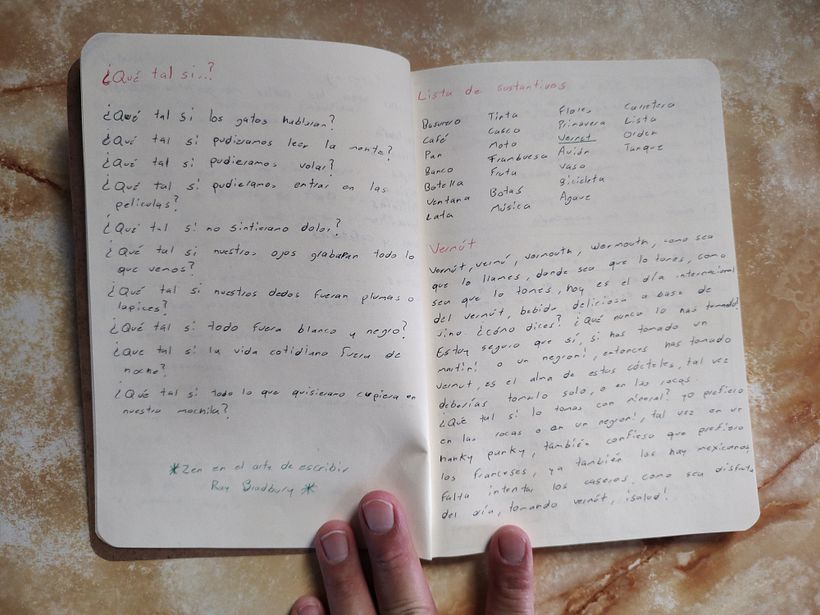 ¿Qué tal si...?
¿Qué tal si los gatos hablaran?
¿Qué tal si pudieramos leer la mente?
¿Qué tal si pudieramos volar?
¿Qué tal si pudieramos entrar en las
peliculas?
¿Qué tal si no sintieramos dolor?
¿Qué tal si nuestros ojos grabaran todo lo
que vemos?
¿Qué tal si nuestros dedos fueran plumas o
lapices?
¿Qué tal si todo fuera blanco y negro?
¿Que tal si la vida cotidiana fuera de
noche?
¿Qué tal si todo lo que quisieramos cupiera en
nuestra mochila?
*Zen en el arte de escribir
Ray Bradbury*
Lista de sustantivos
Basurero Tinta Flores Carretera
Café Casco Primavera Lista
Pan Moto Vermut Orden
Banco Frambuesa Avión Tanque
Botella Fruta Vaso
Ventana Botas Bicicleta
Lata Música Agave
Vermút
Vermút, vermú, vermouth, wermouth, como sea
que lo llames, donde sea que lo tomes, como
sea que lo tomes, hoy es el día internacional
del vermút, bebida deliciosa a base de
vino ¿cómo dices? ¿Qué nunca lo has tomado?
Estoy seguro que sí, si has tomado un
martini o un negroni, entonces has tomado
vermut, es el alma de estos cócteles, tal vez
deberías tomarlo solo, o en las rocas.
¿Qué tal si lo tomas con mineral? yo prefiero
en las rocas o en un negroni, tal vez en un
hanky panky, también confieso que prefiero
los franceses, ya también los hay mexicanos,
falta intentar los caseros, como sea disfruta
del día, tomando vermút, ¡salud!